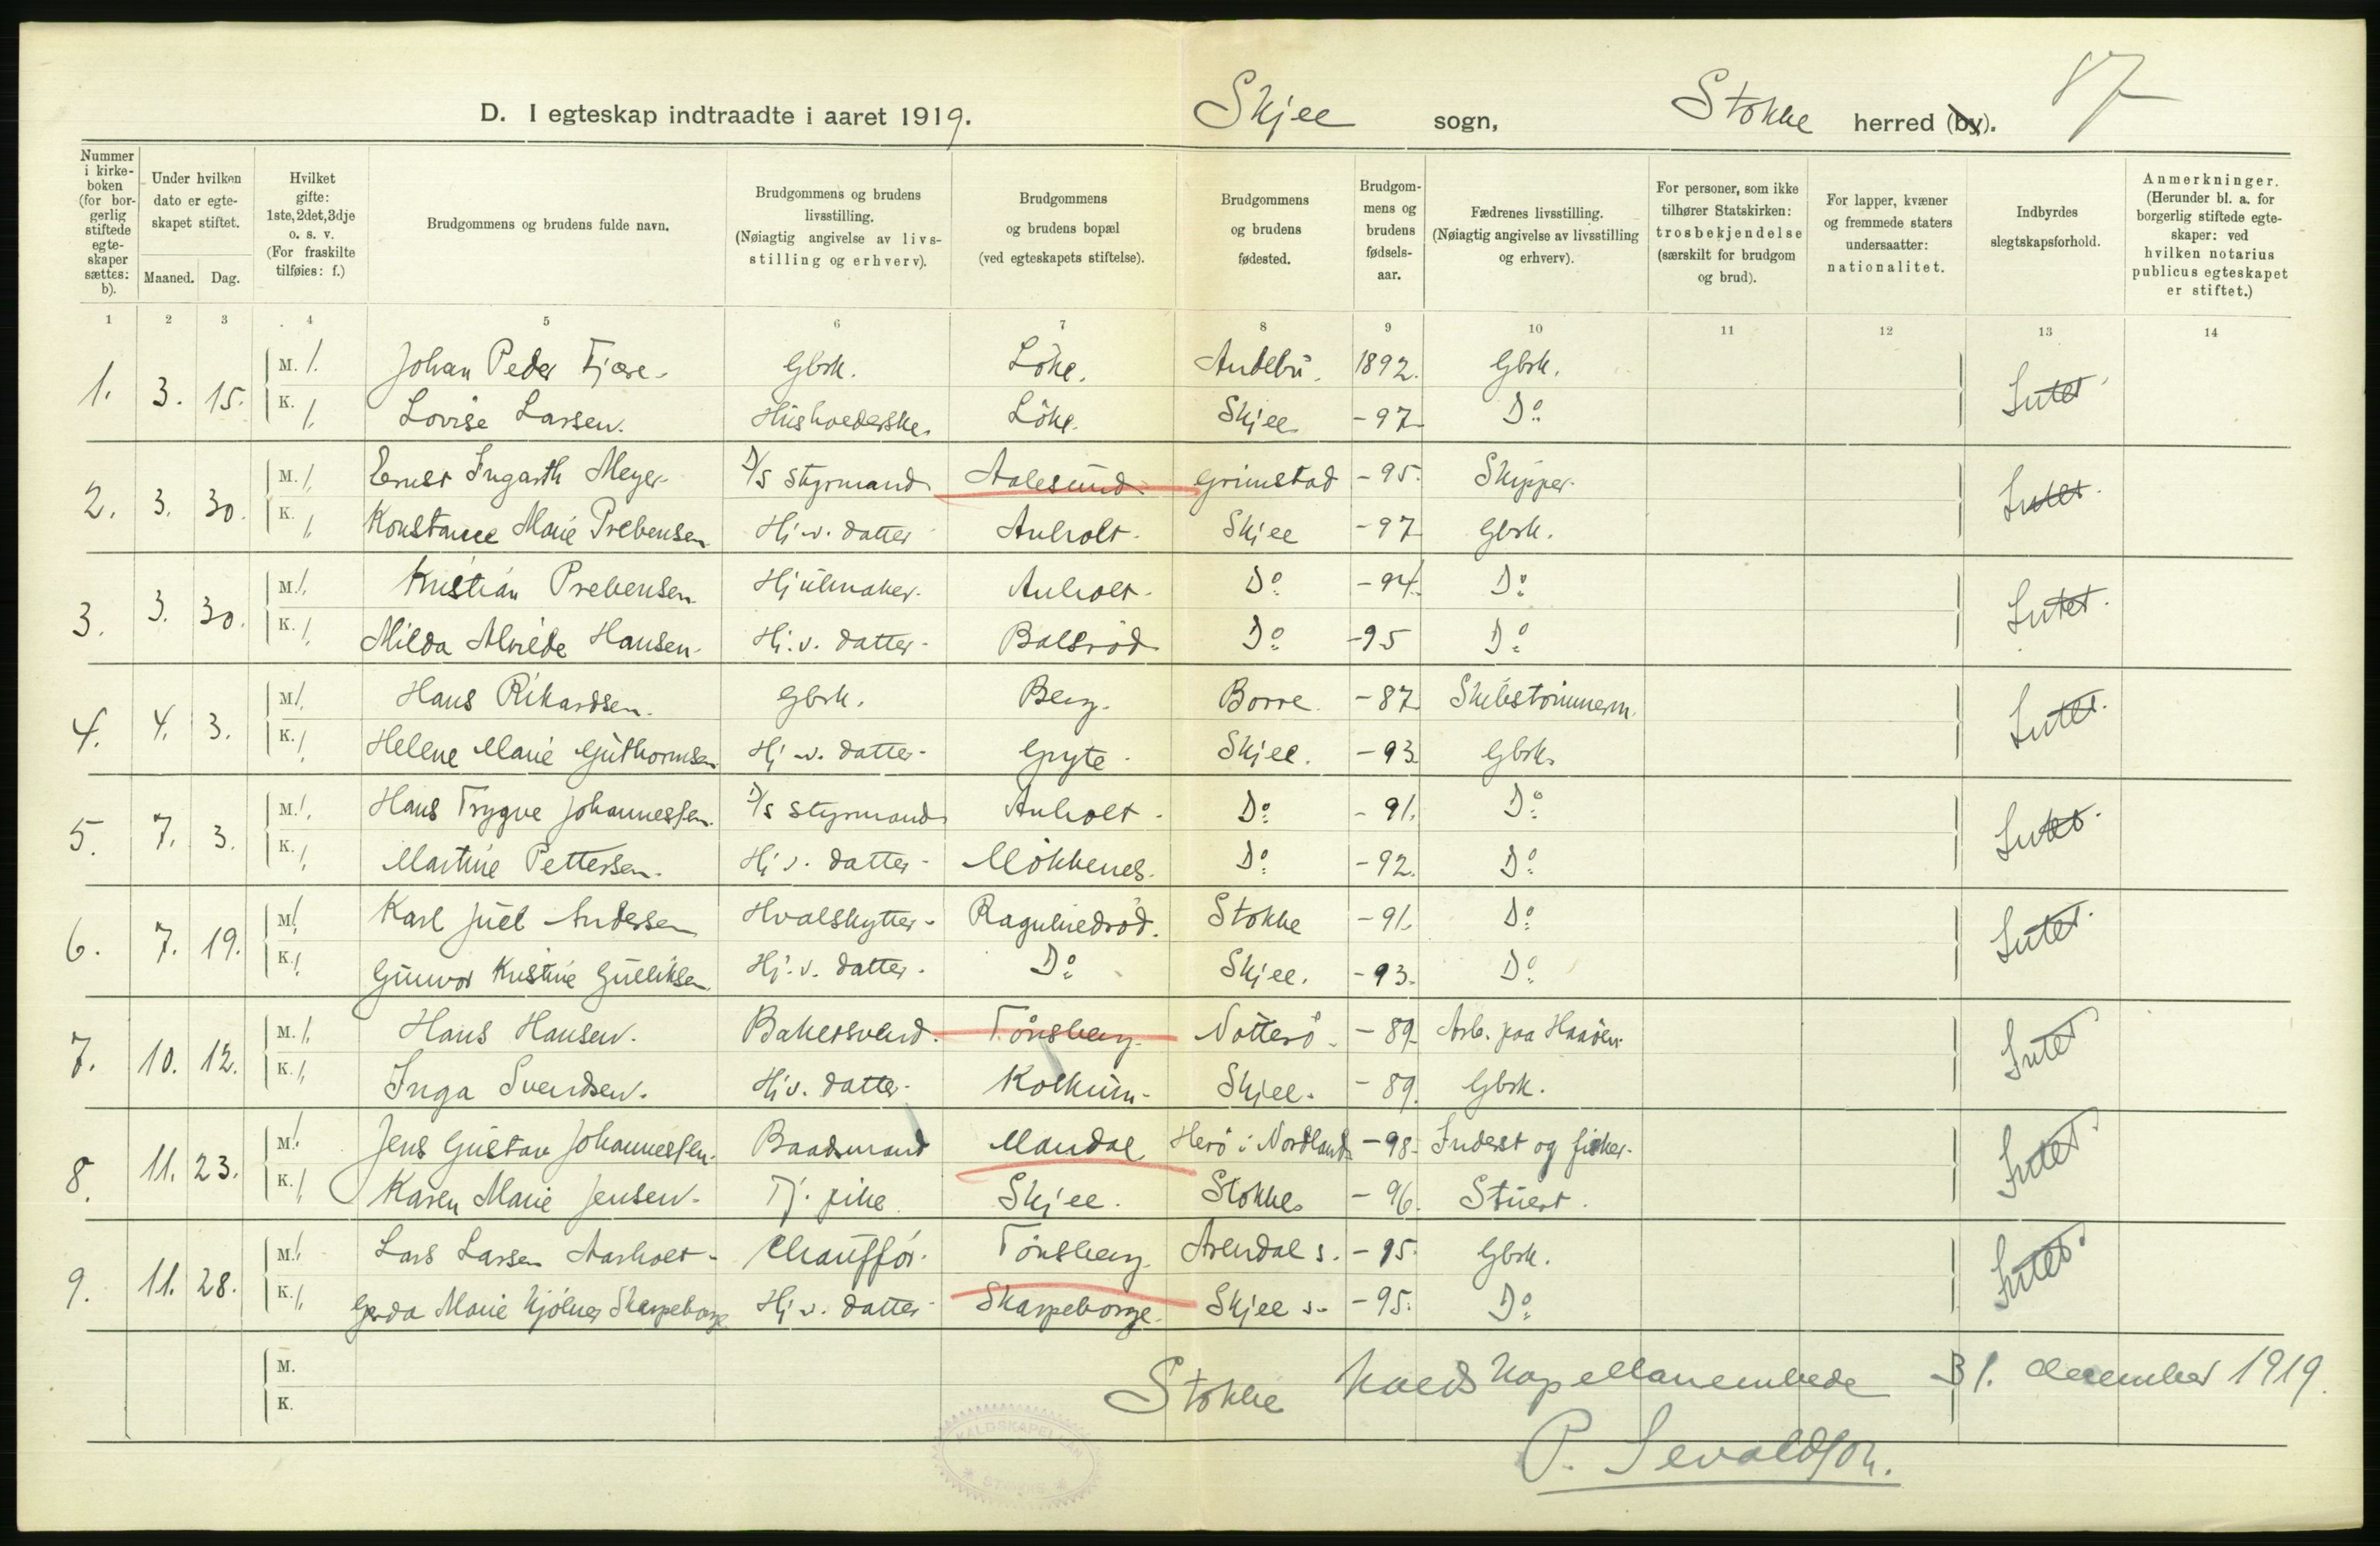 87
D. I egteskap indtraadte i aaret 1919. Skjee sogn, Stokke herred (by).
Nummer i kirkeboken (for borgerlig stiftede egteskaper sættes: b).
Under hvilken dato er egteskapet stiftet.
Maaned. Dag.
Hvilket gifte: 1ste, 2det, 3dje o. s. v. (For fraskilte tilføies: f.)
Brudgommens og brudens fulde navn.
Brudgommens og brudens livsstilling. (Nøiagtig angivelse av livsstilling og erhverv).
Brudgommens og brudens bopæl (ved egteskapets stiftelse).
Brudgommens og brudens fødested.
Brudgommens og brudens fødselsaar.
Fædrenes livsstilling. (Nøiagtig angivelse av livsstilling og erhverv).
For personer, som ikke tilhører Statskirken: trosbekjendelse (særskilt for brudgom og brud).
For lapper, kvæner og fremmede staters undersaatter: nationalitet.
Indbyrdes slegtskapsforhold.
Anmerkninger. (Herunder bl. a. for borgerlig stiftede egteskaper: ved hvilken notarius publicus egteskapet er stiftet.)
1 2 3 4 5 6 7 8 9 10 11 12 13 14
1. 3. 15. M. 1. Johan Peder Fjære. Gbrk. Löke. Andebu. 1892. Gbrk. Intet
K. 1. Lovise Larsen. Husholderske. Löke. Skjee - 97 Do
2. 3. 30. M. 1. Ernst Ingarth Meyer D/S Styrmand Aalesund. Grimstad - 95. Skipper. Intet.
K. 1. Konstance Marie Prebensen Hj. v. datter Anholt. Skjee - 97 Gbrk.
3. 3. 30. M. 1. Kristian Prebensen Hjulmaker. Anholt. Do - 94. Do Intet.
K. 1. Milda Alvilde Hansen. Hj. v. datter. Bolsröd Do - 95 Do
4. 4. 3. M. 1. Hans Rikardsen. Gbrk. Berg. Borre. - 87 Skibstömmerm. Intet.
K. 1. Helene Marie Guthormsen Hj. v. datter. Gryte. Skjee. - 93 Gbrk.
5. 7. 3. M. 1. Hans Trygve Johannessen. D/S Styrmand Anholt. Do - 91. Do Intet.
K. 1. Martine Pettersen. Hj. v. datter. Mökkenes. Do - 92. Do
6. 7. 19. M. 1. Karl Juel Andersen Hvalskytter. Ragnhildröd. Stokke - 91. Do Intet.
K. 1. Gunvor Kristine Gulliksen. Hj. v. datter. Do Skjee. - 93. Do
7. 10. 12. M. 1. Hans Hansen. Bakersvend. Tönsberg. Nötterö. - 89 Arb. paa Haaöen. Intet
K. 1. Inga Svendsen. Hj. v. datter. Kolkinn. Skjee. - 89. Gbrk.
8. 11. 23. M. 1. Jens Gustav Johannessen. Baadsmand Mandal Herö i Nordland - 98. Inderst og fisker. Intet.
K. 1. Karen Marie Jensen. Tj. pike. Skjee. Stokke - 96. Stuert.
9. 11. 28. M. 1. Lars Larsen Aarholt. Chauffør. Tönsberg Arendal s. - 95. Gbrk. Intet.
K. 1. Gerda Marie Kjölner Skarpeborge Hj. v. datter Skarpeborge. Skjee s. - 95. Do
M.
K.
Stokke kaldskapellanembede 31. december 1919.
P. Sevaldson.
KALDSKAPELLAN * STOKKE *